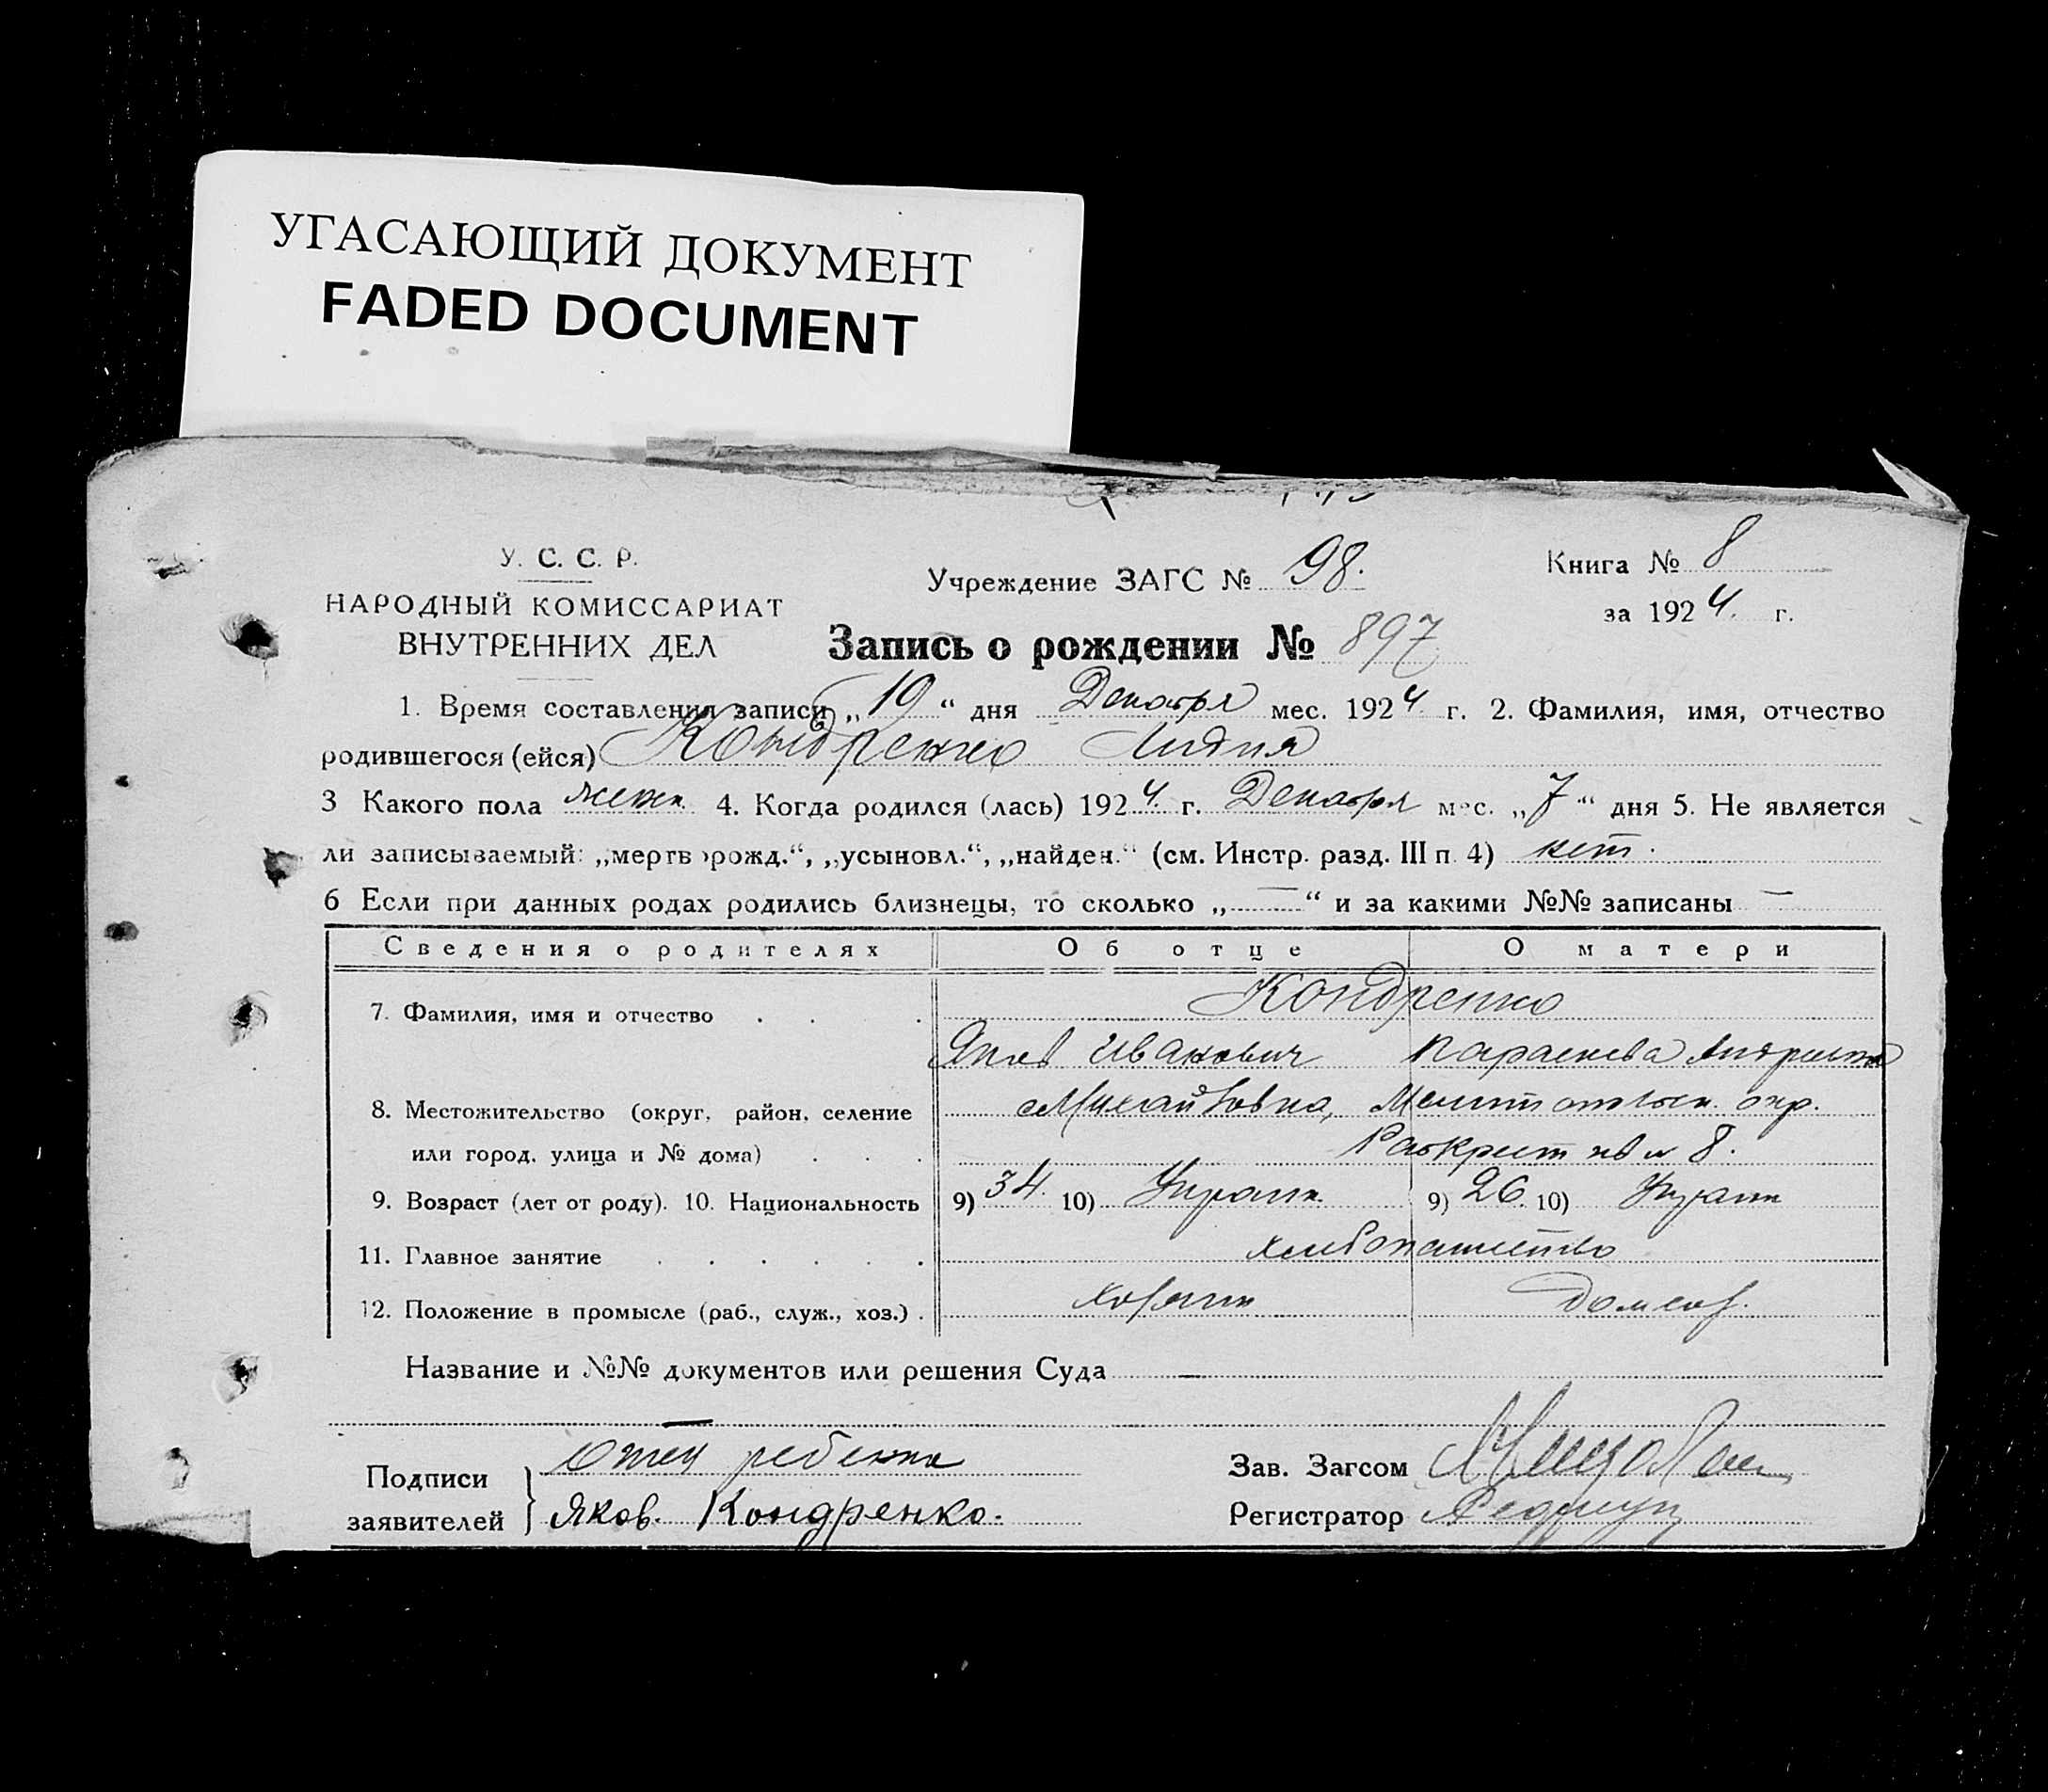 УГАСАЮЩИЙ ДОКУМЕНТ
FADED DOCUMENT
У. С. С. Р.
НАРОДНЫЙ КОМИССАРИАТ
ВНУТРЕННИХ ДЕЛ
Учреждение ЗАГС № 98.
Книга № 8
за 1924. г.
Запись о рождении № 897
1. Время составления записи „19“ дня Декабря мес. 1924 г. 2. Фамилия, имя, отчество
родившегося (ейся) Кондренко Лидия
3 Какого пола женск. 4. Когда родился (лась) 1924. г. Декабря мес. „7“ дня 5. Не является
ли записываемый: „мертворожд.“, „усыновл.“, „найден.“ (см. Инстр. разд. III п. 4) нет.
6 Если при данных родах родились близнецы, то сколько „—“ и за какими №№ записаны —
Сведения о родителях Об отце О матери
7. Фамилия, имя и отчество . . . Кондренко
Яков Иванович Параскева
8. Местожительство (округ, район, селение Михайловка, Мелитопольск. окр.
или город, улица и № дома) . . . 8.
9. Возраст (лет от роду). 10. Национальность 9) 34. 10) Украин. 9) 26. 10) Украин
11. Главное занятие . . . . . . хлебопашество
12. Положение в промысле (раб., служ., хоз.) . хозяин домхоз.
Название и №№ документов или решения Суда —
—
Подписи заявителей } отец ребенка
Яков. Кондренко.
Зав. Загсом
Регистратор